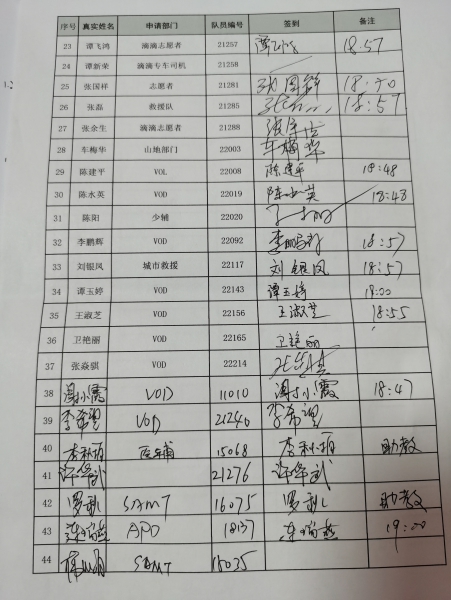 序号 真实姓名 申请部门 队员编号 签到 备注
23 谭飞鸿 滴滴志愿者 21257 18:57
24 谭新荣 滴滴专车司机 21258
25 张国祥 志愿者 21281
26 张磊 救援队 21285 18:57
27 张余生 滴滴志愿者 21288 张余生
28 车梅华 山地部门 22003 车梅华
29 陈建平 VOL 22008 陈建平 18:48
30 陈水英 VOD 22019 陈水英 18:48
31 陈阳 少辅 22020
32 李鹏辉 VOD 22092 李鹏辉 18:57
33 刘银凤 城市救援 22117 刘银凤 18:57
34 谭玉婷 VOD 22143 谭玉婷 19:00
35 王淑芝 VOD 22156 王淑芝 18:55
36 卫艳丽 VOD 22165 卫艳丽
37 张焱骐 VOD 22214
38 冯小霞 VOD 11010 冯小霞 18:47
39 李希望 VOD 21240 李希望
40 李秋丽 医辅 15068 李秋丽 助教
41 许华武 21276 许华武
42 罗利 SAMT 16075 罗利 助教
43 APD 18137 19:00
44 SAMT 15035